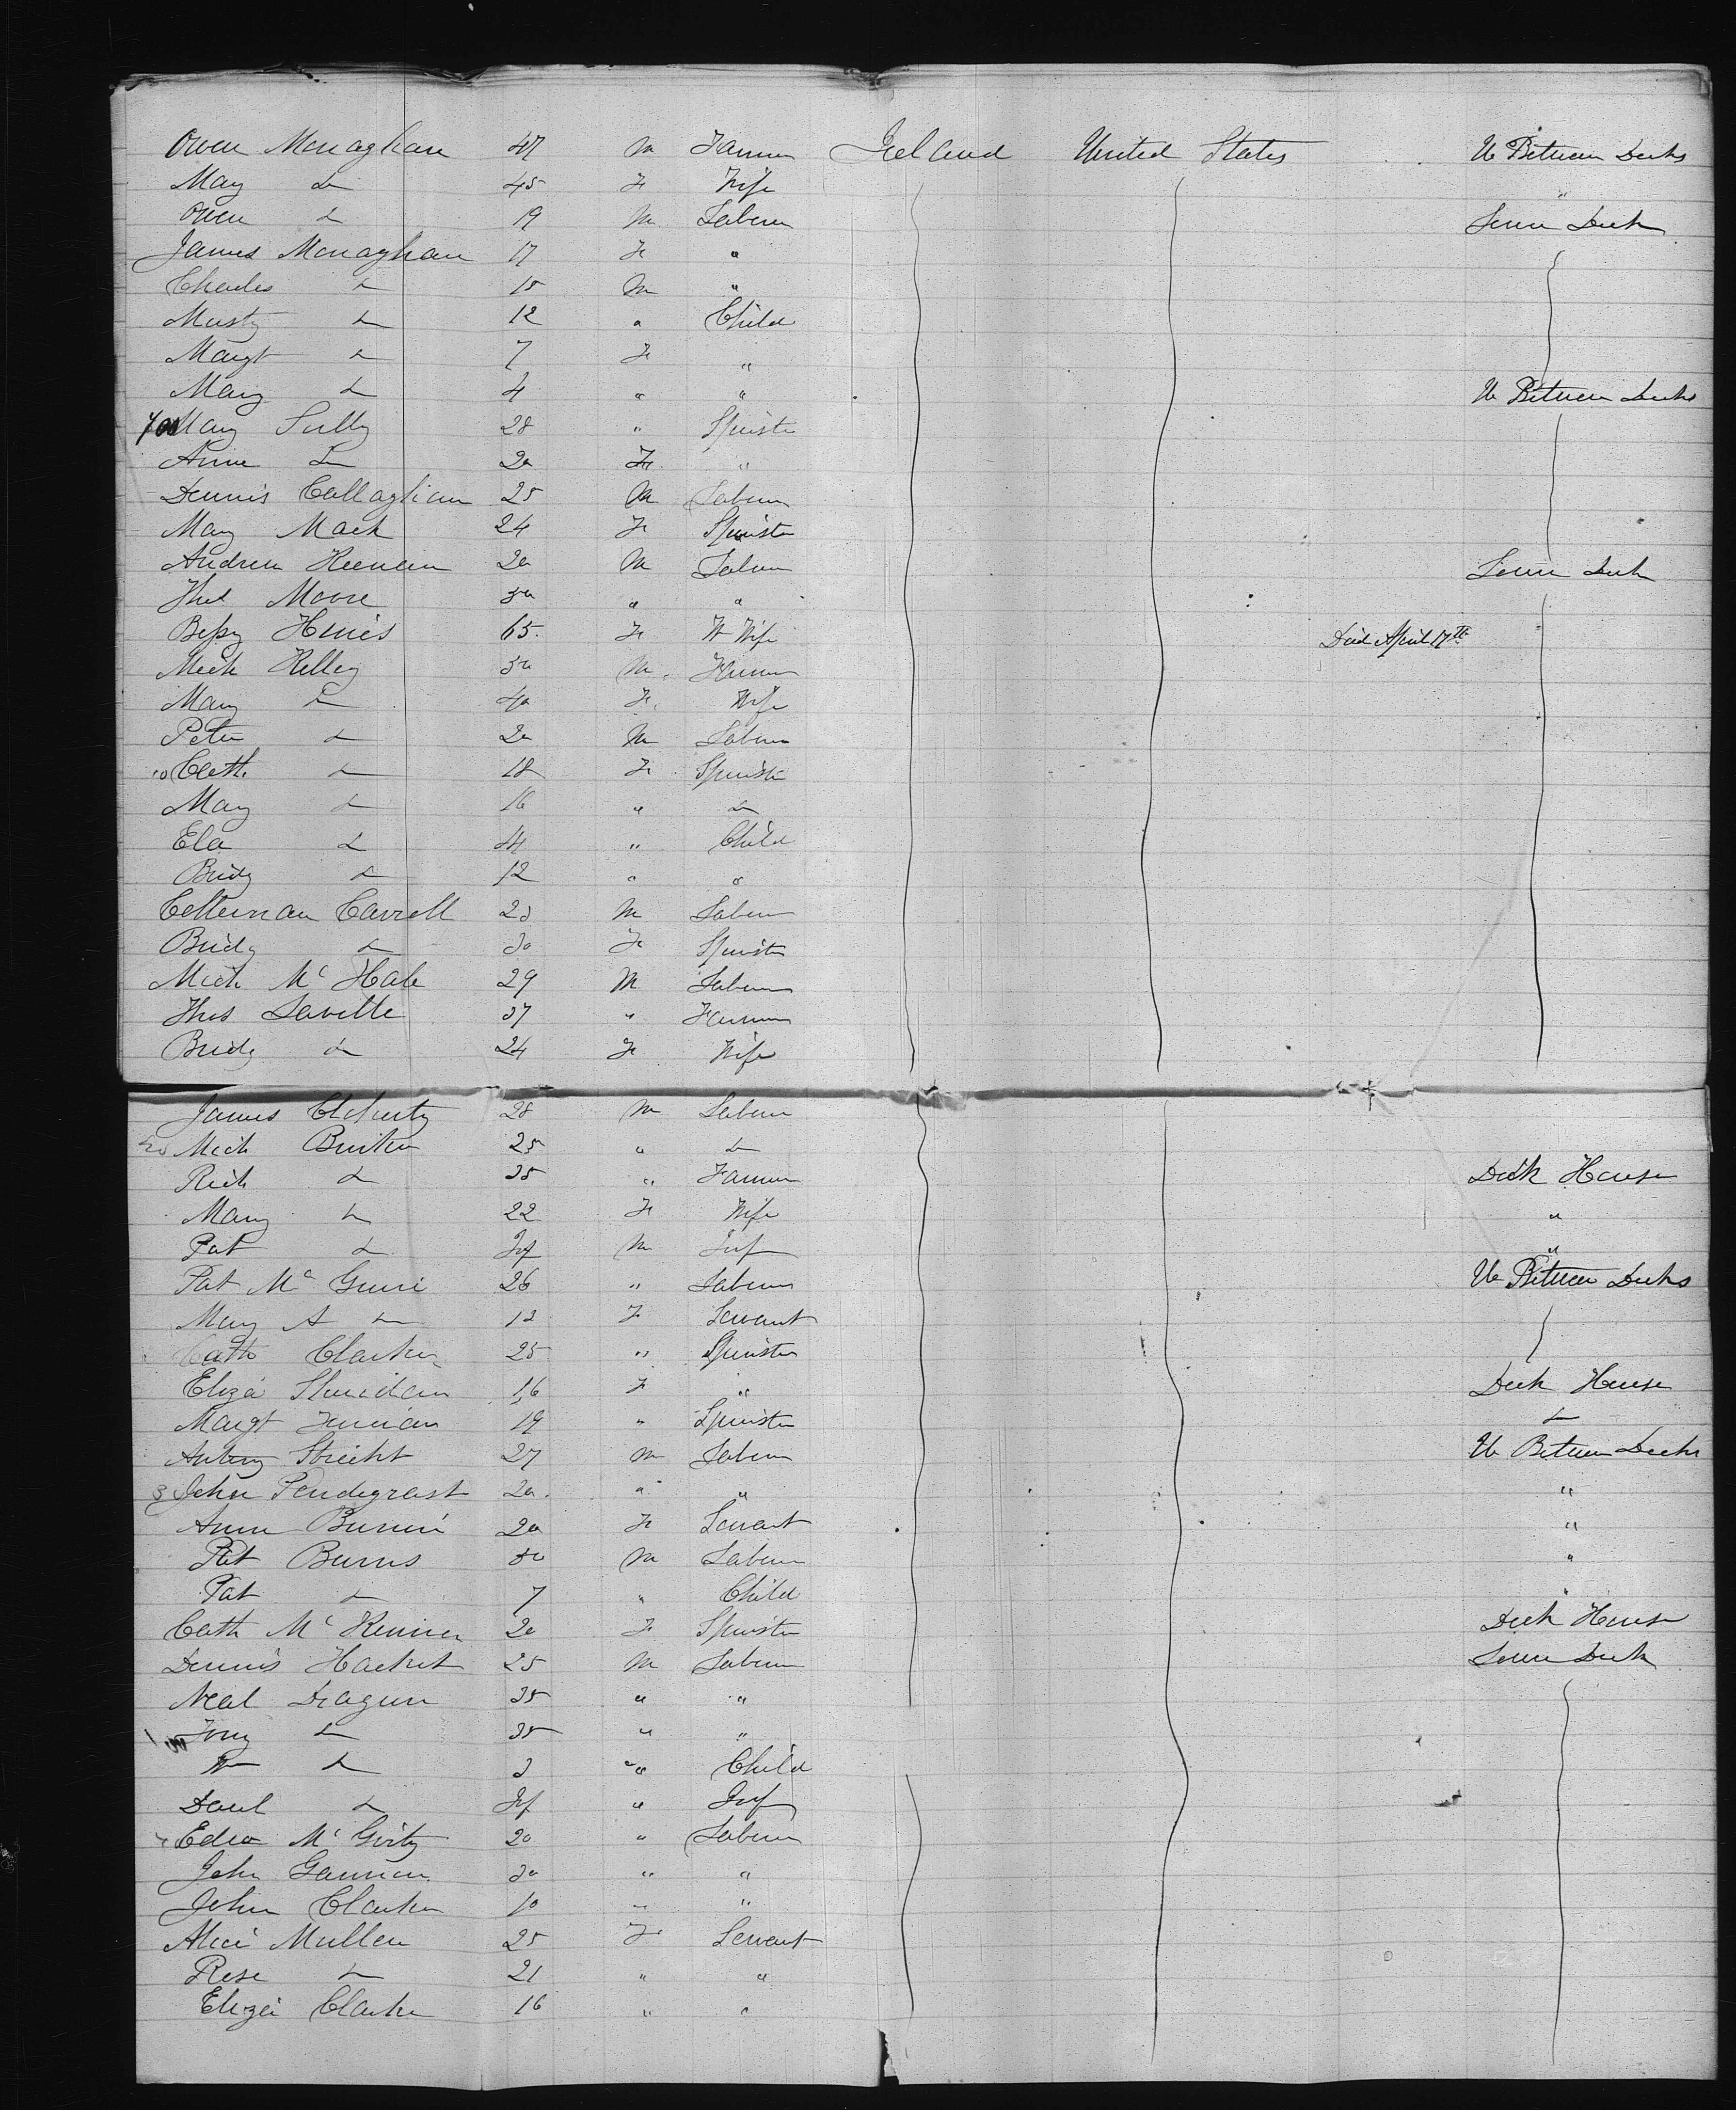 Owen Monaghan 47 M Farmer Ireland United States U Between Decks
Mary Do 45 F Wife "
Owen Do 19 M Laborer Lower Deck
James Monaghan 17 F "
Charles Do 15 M "
Do 12 " Child
Margt Do 7 F "
Mary Do 4 " " U Between Decks
Mary 28 " Spinster
Anne Do 20 F "
Dennis Callaghan 25 M Laborer
Mary Mack 24 F Spinster
Andrew Keenan 20 M Laborer Lower Deck
Thos Moore 30 " "
Bessy 65 F Wife Died April 17th
Mich Kelley 50 M Farmer
Mary Do 40 F Wife
Peter Do 20 M Laborer
10 Cath Do 18 F Spinster
Mary Do 16 " Do
Do 14 " Child
Bridg Do 12 " "
Carroll 23 M Laborer
Bridg Do 30 F Spinster
Mich Mc Hale 29 M Laborer
Thos Lavelle 37 " Farmer
Bridg Do 24 F Wife
James 28 M Laborer
20 Mich Burke 25 " Do
Rich Do 35 " Farmer Deck House
Mary Do 22 F Wife "
Pat Do Inf M Inf "
Pat Mc Guire 26 " Laborer U Between Decks
Mary A Do 13 F Servant
Cath Clarke 25 " Spinster
Eliza Sheridan 16 F " Deck House
Margt 19 " Spinster Do
27 M Laborer U Between Decks
3 John Pendegrast 20 " " "
Anne 20 F Servant "
Pat Burns 30 M Laborer "
Pat Do 7 " Child "
Cath Mc 20 F Spinster Deck House
Dennis Hacket 25 M Laborer Lower Deck
Neal 35 " "
Do 35 " "
Wm Do 3 " Child
Do Inf " Inf
20 " Laborer
John Gannon 30 " "
John Clarke 10 " "
Alice Mullen 25 F Servant
Rose Do 21 " "
Eliza Clarke 16 " "